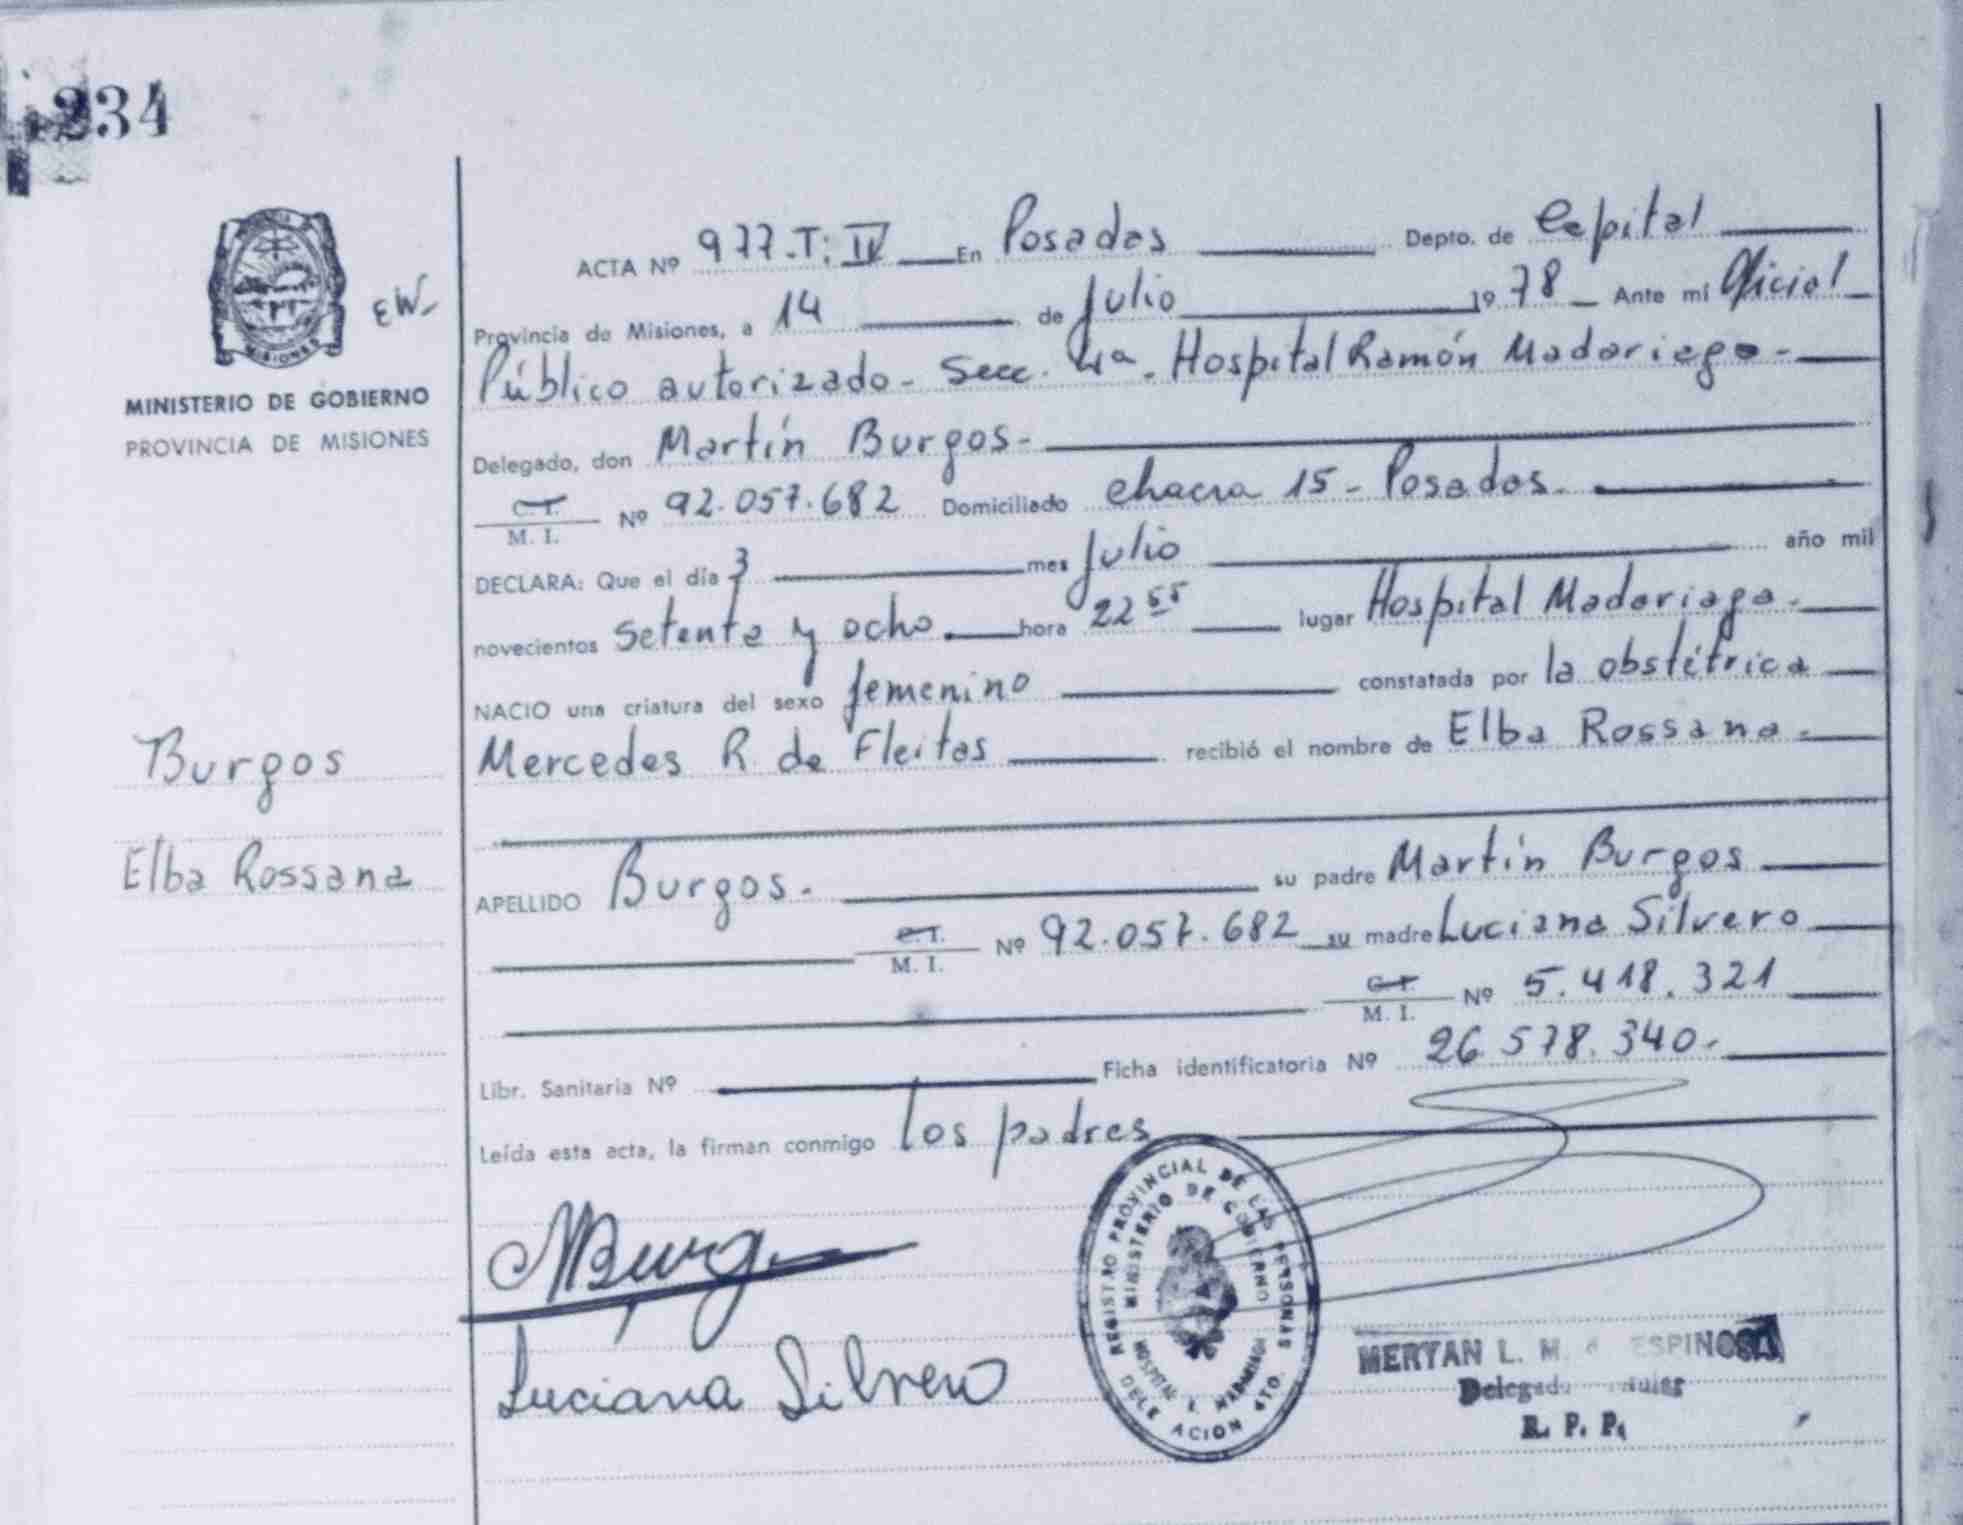 234
MISIONES
MINISTERIO DE GOBIERNO
PROVINCIA DE MISIONES
ACTA Nº 977.T: IV En Posadas Depto. de Capital
Provincia de Misiones, a 14 de Julio 19 78 Ante mi Oficial
Público autorizado - Secc. 4ª. Hospital Ramón Madariaga -
Delegado, don Martín Burgos -
C. I.
M. I. Nº 92.057.682 Domiciliado chacra 15 - Posadas.
DECLARA: Que el día 3 mes Julio año mil
novecientos setenta y ocho. hora 22 55 lugar Hospital Madariaga.
NACIO una criatura del sexo femenino constatada por la obstétrica
Mercedes R de Fleitas recibió el nombre de Elba Rossana.
Burgos
Elba Rossana
APELLIDO Burgos. su padre Martín Burgos
C. I.
M. I. Nº 92.057.682 su madre Luciana Silvero
C. I.
M. I. Nº 5.418.321
Libr. Sanitaria Nº Ficha identificatoria Nº 26.578.340.
Leída esta acta, la firman conmigo los padres
Luciana Silvero
REGISTRO PROVINCIAL DE LAS PERSONAS
MINISTERIO DE GOBIERNO
HOSPITAL R. MADARIAGA
DELEGACION 4TO.
MERYAN L. M. ESPINOSA
R. P. P.